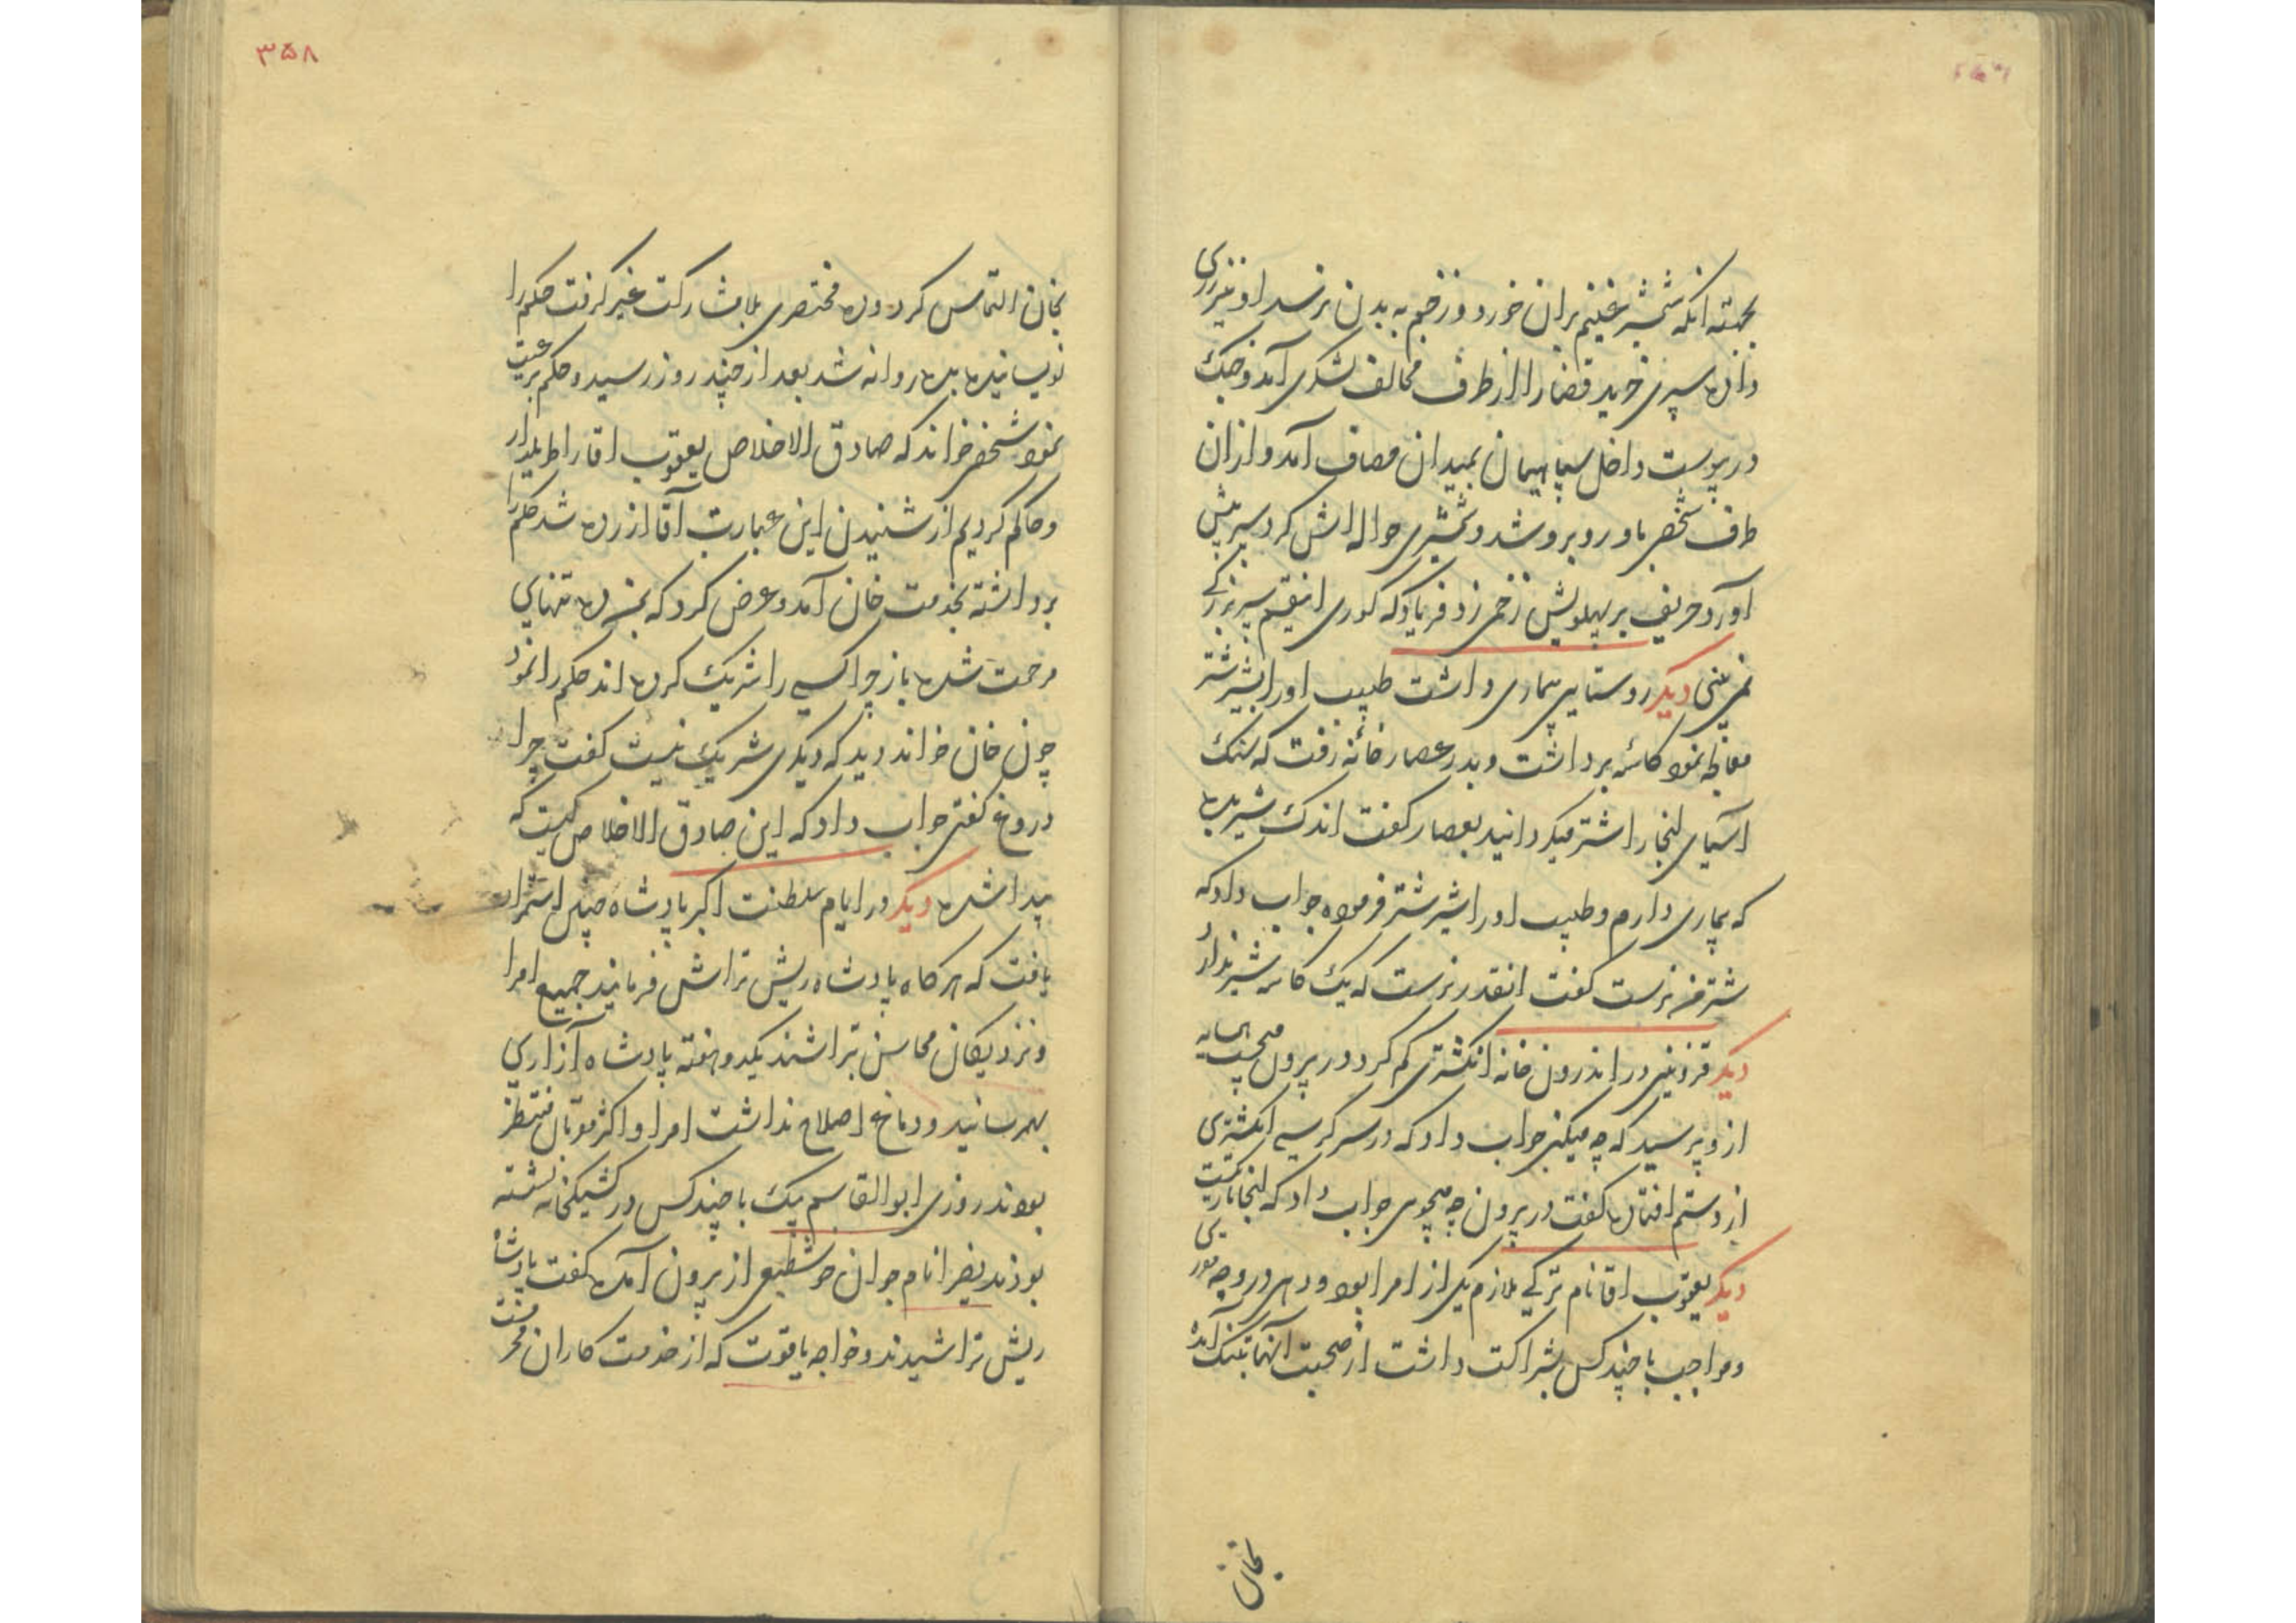 بجهته انکه شمشیر غنیم بران خورد و زخم به بدن نرسد او نیز زری
داده سپری خرید قضارا از طرف مخالف لشکری آمد و جنک
در پیوست داخل سپاهیان بمیدان مصاف آمد و ازان
طرف شخصی باو روبرو شد و شمشیری حواله اش کرد سپر پیش
آورد حریف بر پهلویش زخمی زد فریاد که کوری اینقسم سپر بزرکے
نمی بینی دیکر روستایی بیماری داشت طبیب اورا بشیر شتر
معالجه نمود کاسه برداشت و بدر عصارخانه رفت که سنک
آسیای انجا را شتر میکردانید بعصار کفت اندک شیر بده
که بیماری دارم و طبیب اورا شیر شتر فرموده جواب داد که
شتر من نرست کفت انقدر نرست که یک کاسه شیر ندارد
دیکر قزوینی در اندرون خانه انکشتری کم کرد در بیرون میجست همسایه
ازو پرسید که چه میکنی جواب داد که در سر کرسی انکشتری
از دستم افتاده کفت در بیرون چه میجوی جواب داد که انجا تاریکست
دیکر یعقوب اقا نام ترکے ملازم یکی از امرا بود و دهی در وجه
و مواجب با چند کس بشراکت داشت از صحبت آنها بتنک آمده
بخان
۳۵۸
بخان التماس کرد و ده مختصری بلامشارکت غیر کرفت حکم را
نویسانیده بده روانه شد بعد از چند روز رسید و حکم برعیت
نمود شخصی خواند که صادق الاخلاص یعقوب اقا را
و حاکم کردیم از شنیدن این عبارت آقا ازرده شد حکم را
برداشته بخدمت خان آمد و عرض کرد که بمن ده تنهایی
مرحمت شده باز چرا کسی را شریک کرده اند حکم را نمود
چون خان خواند دید که دیکری شریک نیست کفت چرا
دروغ کفتی جواب داد که این صادق الاخلاص کیست که
پیدا شده دیکر در ایام سلطنت اکبر پادشاه چنین استمرار
یافت که هرکاه پادشاه ریش تراشی فرمایند جمیع امرا
و نزدیکان محاسن بتراشند یکدو هفته پادشاه آزاری
بهمرسانید و دماغ اصلاح نداشت امرا و اکثر مقربان منتظر
بودند روزی ابوالقاسم بیک با چند کس در کشیکخانه نشسته
بودند نام جوان خوشطبعی از بیرون آمده کفت پادشاه
ریش تراشیدند و خواجه یاقوت که از خدمت کاران